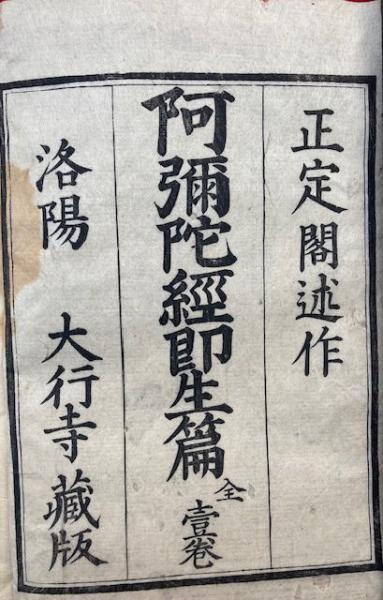 正定閣述作
阿彌陀經即生篇 全壹卷
洛陽 大行寺藏版